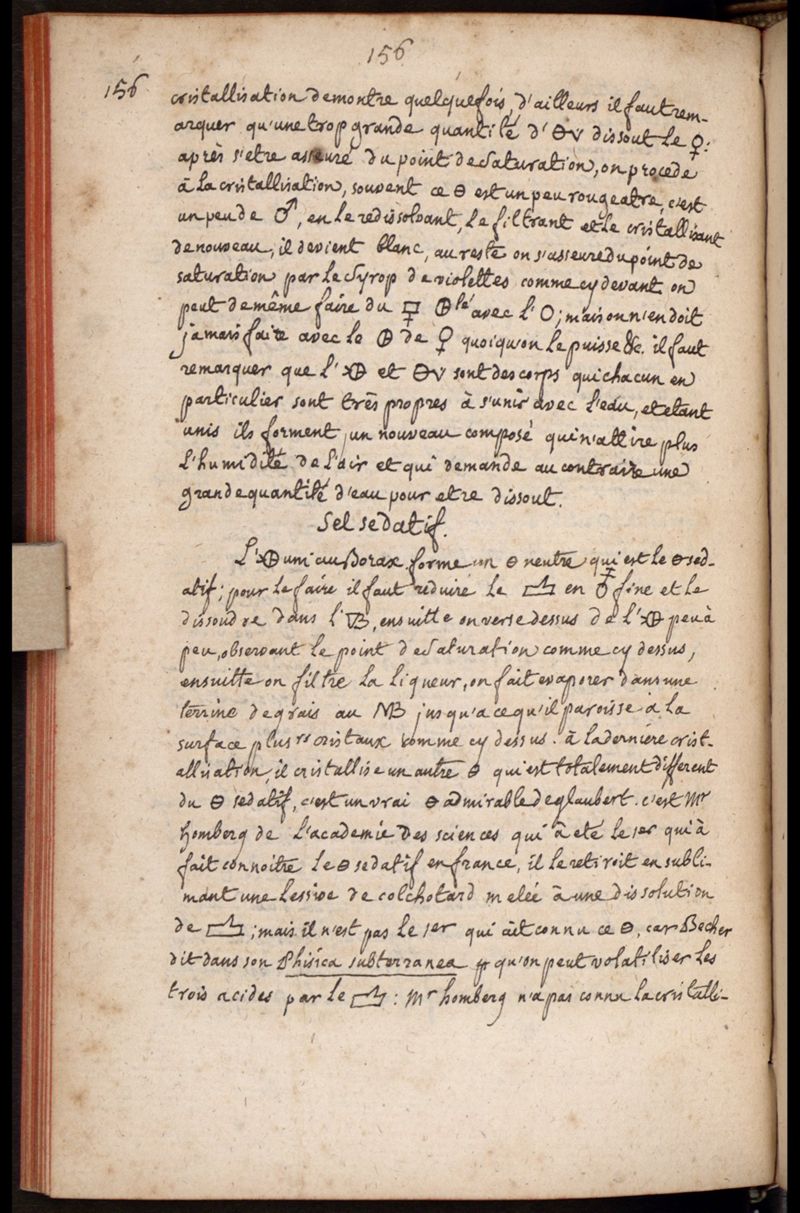 156
156
cristallisation demontre quelquefois, d'ailleurs il faut rem-
arquer qu'une trop grande quantité d'🜔v dissout le ♀.
après s'etre asseuré du point de saturation, on procede
à la cristallisation, souvent ce 🜔 est un peu rougeatre, c'est
un peu de ♂, en le redissolvant, le filtrant et le cristallisant
de nouveau, il devient blanc, au reste on s'asseure du point de
saturation par le syrop de violettes comme cy devant on
peut de même faire du 🜿 🜖lé avec l'O; mais on n'en doit
jamais faire avec le 🜖 de ♀ quoiqu'on le puisse &c. il faut
remarquer que l'🜖 et 🜔v sont des corps qui chacun en
particulier sont très propres à s'unir avec l'eau, et etant
unis ils forment un nouveau composé qui n'attire plus
l'humidité de l'air et qui demande au contraire une
grande quantité d'eau pour etre dissout.
Sel sedatif.
L'🜖 uni au Borax forme un 🜔 neutre qui est le 🜔 sed-
atif; pour le faire il faut reduire le en fine et le
dissoudre dans l', ensuitte on verse dessus de l'🜖 peu à
peu, observant le point de saturation comme cy dessus,
ensuitte on filtre la liqueur, on fait evaporer dans une
terrine de grais au MB jusqu'a ce qu'il paroisse à la
surface plusrs cristaux comme cy dessus. à la derniere crist-
allisation, il cristallise un autre 🜔 qui est totalement different
du 🜔 sedatif, c'est un vrai 🜔 admirable de glaubert. c'est Mr
homberg de l'academie des sciences qui à eté le 1er qui à
fait connoitre le 🜔 sedatif en france, il le retiroit en subli-
mant une lessive de colchotard melée à une dissolution
de ; mais il n'est pas le 1er qui ait connu ce 🜔, car Becher
dit dans son Phisica subterranea qu'on peut volatiliser les
trois acides par le : Mr homberg n'a pas connu la cristalli-